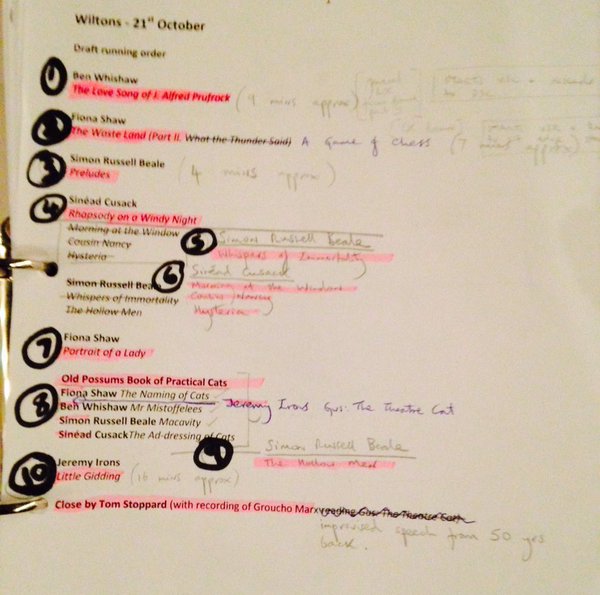 Wiltons - 21st October
Draft running order
1 Ben Whishaw
The Love Song of J. Alfred Prufrock (9 mins approx)
2 Fiona Shaw
The Waste Land (Part II. What the Thunder Said) A Game of Chess (7 mins approx)
3 Simon Russell Beale
Preludes (4 mins approx)
4 Sinéad Cusack
Rhapsody on a Windy Night
Morning at the Window
Cousin Nancy
Hysteria
5 Simon Russell Beale
Whispers of Immortality
6 Sinéad Cusack
Morning at the Window
Cousin Nancy
Hysteria
Simon Russell Beale
Whispers of Immortality
The Hollow Men
7 Fiona Shaw
Portrait of a Lady
Old Possums Book of Practical Cats
8 Fiona Shaw The Naming of Cats
Ben Whishaw Mr Mistoffelees Jeremy Irons Gus: The Theatre Cat
Simon Russell Beale Macavity
Sinéad Cusack The Ad-dressing of Cats
9 Simon Russell Beale
The Hollow Men
10 Jeremy Irons
Little Gidding (16 mins approx)
Close by Tom Stoppard (with recording of Groucho Marx reading Gus: The Theatre Cat)
improvised speech from 50 yrs
back.